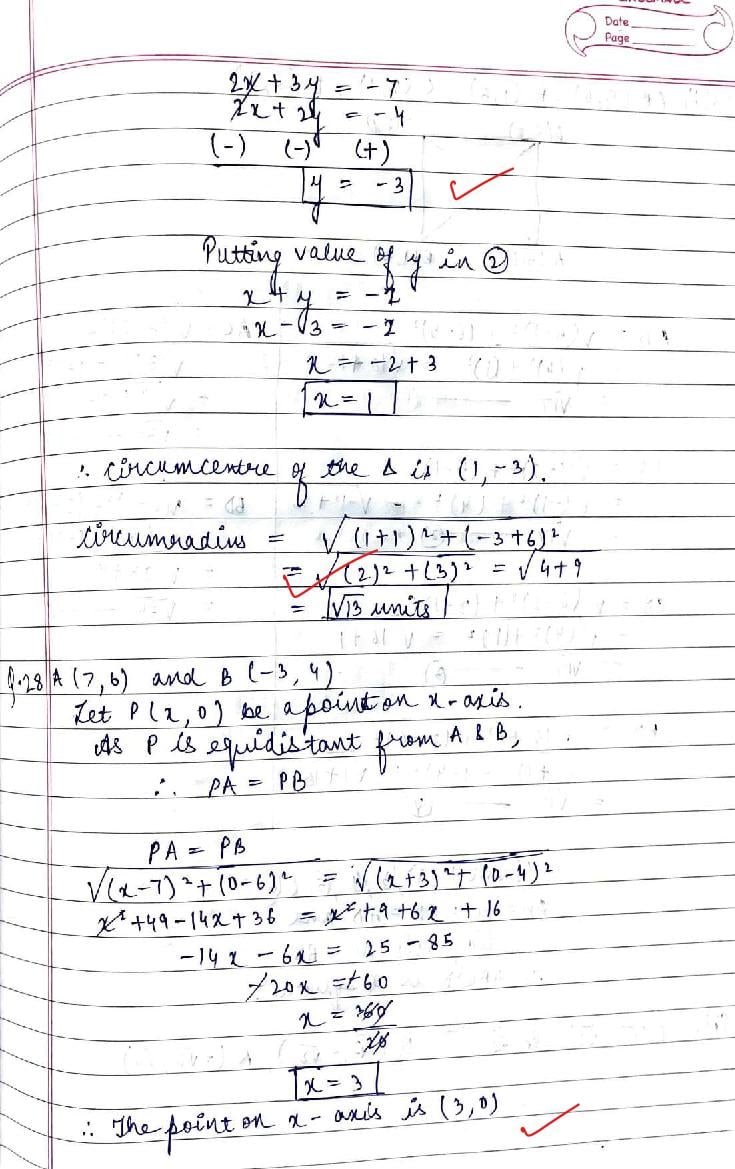 Date
Page
2x + 3y = -7
2x + 2y = -4
(-) (-) (+)
y = -3
Putting value of y in ②
x + y = -2
x - 3 = -2
x = -2 + 3
x = 1
∴ circumcentre of the Δ is (1, -3).
circumradius = √(1+1)² + (-3+6)²
= √(2)² + (3)² = √4+9
= √13 units
Q.28 A (7, 6) and B (-3, 4)
Let P (x, 0) be a point on x-axis.
As P is equidistant from A & B,
∴ PA = PB
PA = PB
√(x-7)² + (0-6)² = √(x+3)² + (0-4)²
x² + 49 - 14x + 36 = x² + 9 + 6x + 16
-14x - 6x = 25 - 85
-20x = -60
x = 60
20
x = 3
∴ The point on x-axis is (3, 0)